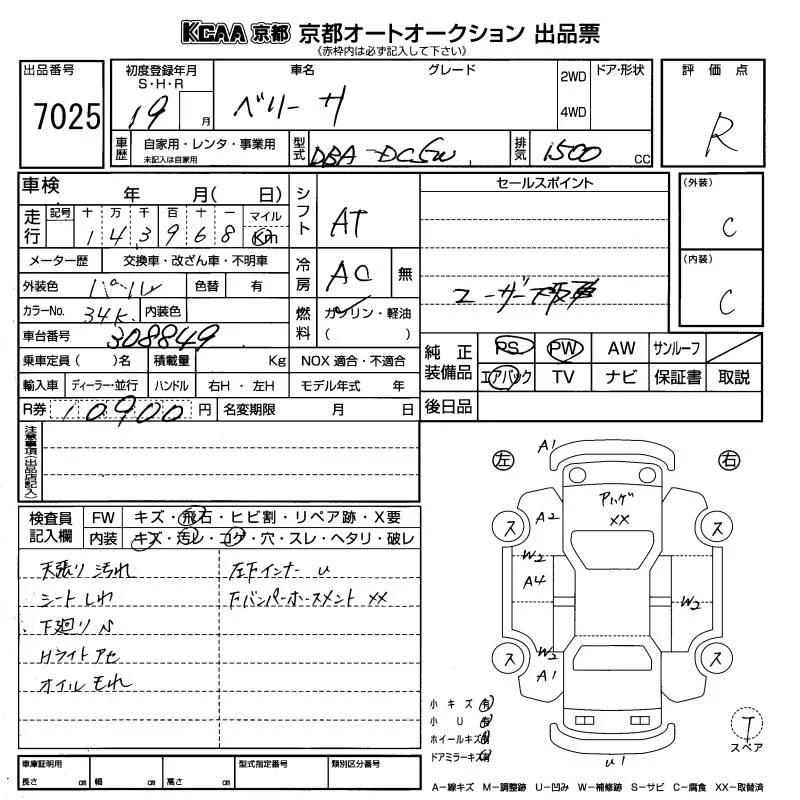 KCAA 京都 京都オートオークション 出品票
(赤枠内は必ず記入して下さい)
出品番号
7025
初度登録年月
S・H・R
19 月
車名 グレード
ベリーサ
2WD
4WD
ドア・形状
評価点
R
車歴
自家用・レンタ・事業用
未記入は自家用
型式
DBA-DC5W
排気
1500 CC
車検 年 月( 日)
走行
記号 十 万 千 百 十 一 マイル
1 4 3 9 6 8 Km
メーター歴 交換車・改ざん車・不明車
外装色 パール 色替 有
カラーNo. 34K 内装色
車台番号 308849
乗車定員 ( )名 積載量 Kg
輸入車 ディーラー・並行 ハンドル 右H・左H
R券 10900 円 名変期限 月 日
シフト AT
冷房 AC 無
燃料 ガソリン・軽油
( )
NOX 適合・不適合
モデル年式 年
セールスポイント
ユーザー下取車
(外装)
C
(内装)
C
純正装備品
PS PW AW サンルーフ
エアバック TV ナビ 保証書 取説
後日品
注意事項(出品店記入)
検査員記入欄
FW キズ・飛石・ヒビ割・リペア跡・X要
内装 キズ・汚レ・コゲ・穴・スレ・ヘタリ・破レ
天張り汚れ
シートしわ
下廻りS
Hライトアセ
オイルもれ
左下インナーU
Fバンパーホースメント XX
左 右
A1
アハゲ
XX
A2
ス ス
W2
A4
W2
W2
A1
ス ス
U1
小キズ 有
小U 有
ホイールキズ 有
ドアミラーキズ 有
T
スペア
車庫証明用
長さ cm 幅 cm 高さ cm
型式指定番号 類別区分番号
A−線キズ M−調整跡 U−凹み W−補修跡 S−サビ C−腐食 XX−取替済